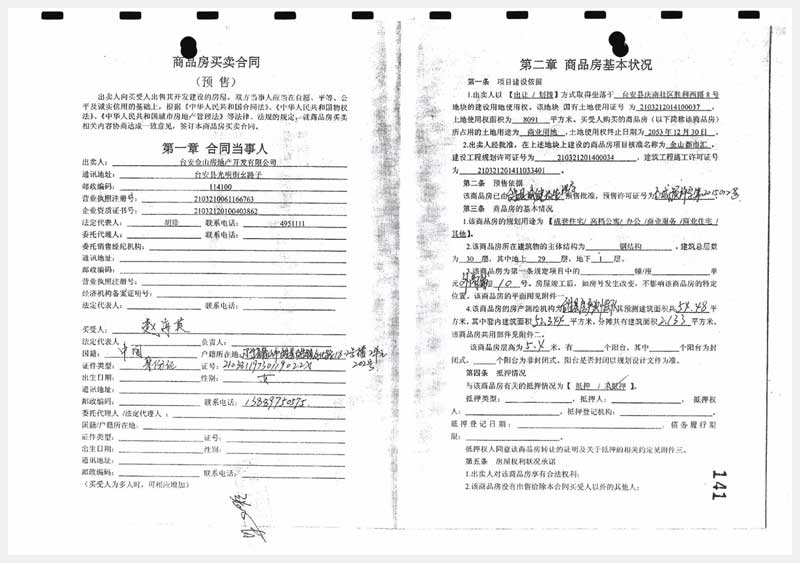 商品房买卖合同
（预 售）
出卖人向买受人出售其开发建设的房屋，双方当事人应当在自愿、平等、公
平及诚实信用的基础上，根据《中华人民共和国合同法》、《中华人民共和国物权
法》、《中华人民共和国城市房地产管理法》等法律、法规的规定，就商品房买卖
相关内容协商达成一致意见，签订本商品房买卖合同。
第一章 合同当事人
出卖人： 台安金山房地产开发有限公司
通讯地址： 台安县光明街玄路子
邮政编码： 114100
营业执照注册号： 2103210061166763
企业资质证书号： 21032120100403862
法定代表人： 胡珍 联系电话： 4951111
委托代理人： 联系电话：
委托销售经纪机构：
通讯地址：
邮政编码：
营业执照注册号：
经济机构备案证明号：
法定代表人： 联系电话：
买受人：
法定代表人： 负责人：
国籍： 中国 户籍所在地：
证件类型： 身份证 证号：
出生日期： 性别： 女
通讯地址：
邮政编码： 联系电话：
委托代理人 /法定代理人：
国籍/户籍所在地：
证件类型： 证号：
出生日期： 性别：
通讯地址：
邮政编码： 联系电话：
(买受人为多人时，可相应增加)
第二章 商品房基本状况
第一条 项目建设依据
1.出卖人以【出让 / 划拨】方式取得坐落于 台安县庆南社区胜利西路 8 号
地块的建设用地使用权。该地块 国有土地使用证号 为 2103212014100037 ，
土地使用权面积为 8091 平方米。买受人购买的商品房（以下简称该商品房）
所占用的土地用途为 商业用地 ，土地使用权终止日期为 2053 年 12 月 30 日 。
2.出卖人经批准，在上述地块上建设的商品房项目核准名称为 金山都市汇 ，
建设工程规划许可证号为 210321201400034 ，建筑工程施工许可证号
为 210321201411033401 。
第二条 预售依据
该商品房已由 预售批准，预售许可证号为
第三条 商品房的基本情况
1.该商品房的规划用途为【成套住宅/ 高档公寓/ 办公 /商业服务 /商业住宅 /
其他】.
2.该商品房所在建筑物的主体结构为 钢结构 ，建筑总层数
为 30 层，其中地上 29 层，地下 1 层。
3.该商品房为第一条规定项目中的 幢/座 单
元 层 10 号。房屋竣工后，如房号发生改变，不影响该商品房的特定
位置。该商品房的平面图见附件一。
4.该商品房的房产测绘机构为 ，其预测建筑面积共 54.48 平
方米，其中套内建筑面积 52.344 平方米，分摊共有建筑面积 2.133 平方米。
该商品房共用部件见附件二。
该商品房层高为 5.4 米，有 个阳台，其中 个阳台为封
闭式， 个阳台为非封闭式。阳台是否封闭以规划设计文件为准。
第四条 抵押情况
与该商品房有关的抵押情况为【 抵押 / 未抵押 】.
抵押类型： ，抵押人： ，抵押权
人： ，抵押登记机构： ，
抵押登记日期： ，债务履行期
限： 。
抵押权人同意该商品房转让的证明及关于抵押的相关约定见附件三。
第五条 房屋权利状况承诺
1.出卖人对该商品房享有合法权利；
2.该商品房没有出售给除本合同买受人以外的其他人；
141